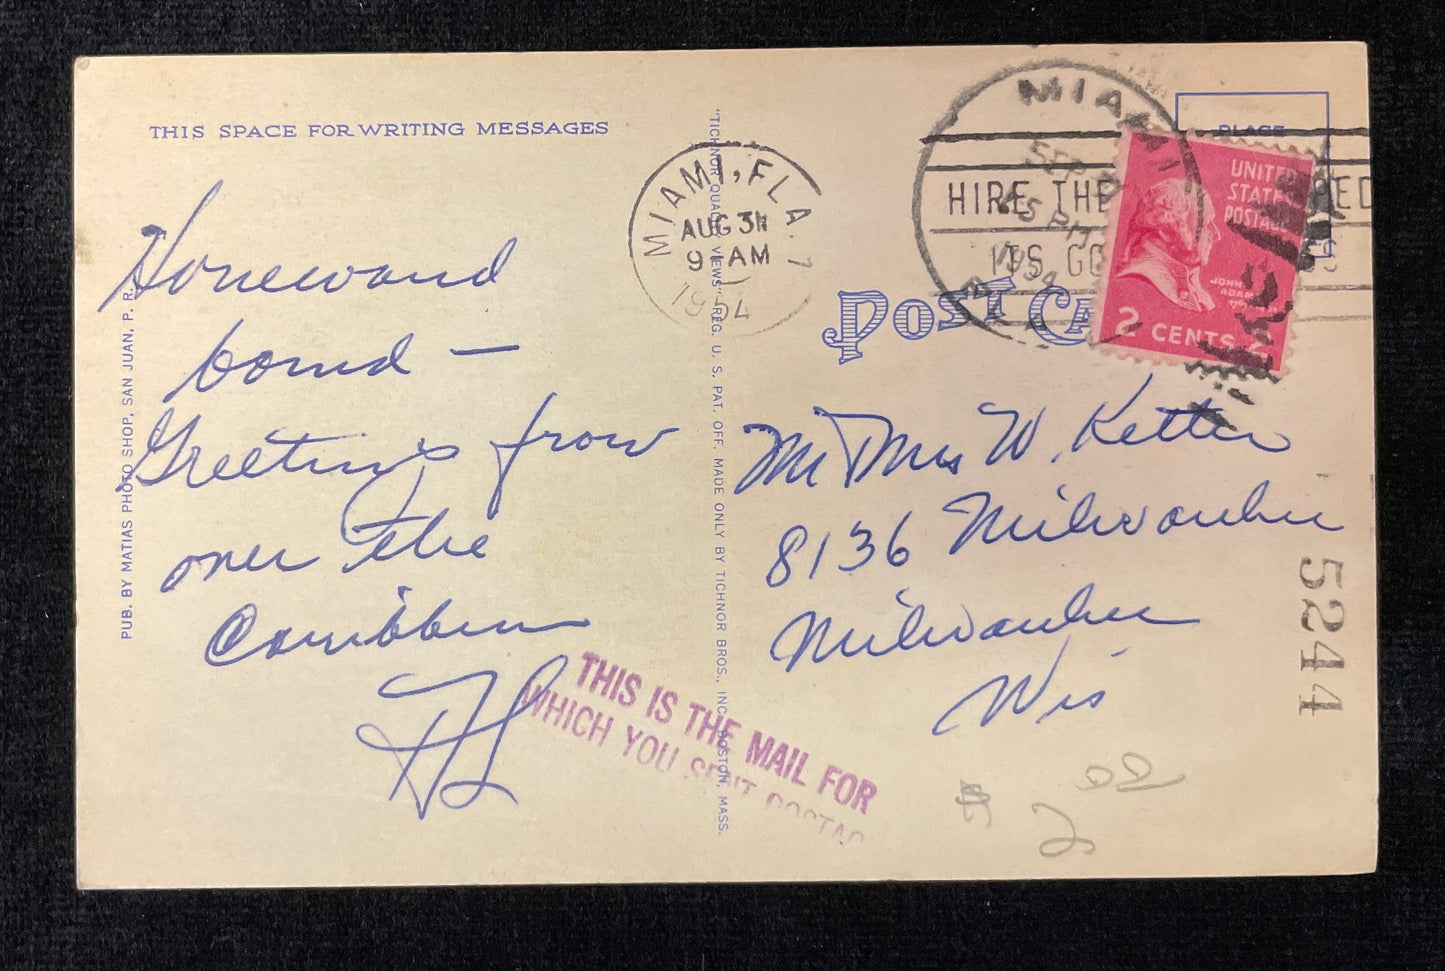 THIS SPACE FOR WRITING MESSAGES
Homeward
bound —
Greetings from
over the
Caribbean
PUB. BY MATIAS PHOTO SHOP, SAN JUAN, P. R.
"TICHNOR QUALITY VIEWS" REG. U. S. PAT. OFF. MADE ONLY BY TICHNOR BROS., INC. BOSTON, MASS.
MIAMI, FLA. 7
AUG 31
9 AM
1954
MIAMI
SEP
PM
1954
FLA
HIRE THE
ITS GO
PLACE
UNITED
STATES
POSTAGE
JOHN
ADAMS
2 CENTS 2
POST CA
Mr Mrs W. Ketter
8136 Milwaukee
Milwaukee
Wis
5244
THIS IS THE MAIL FOR
WHICH YOU SENT POSTAG
$ 2 00